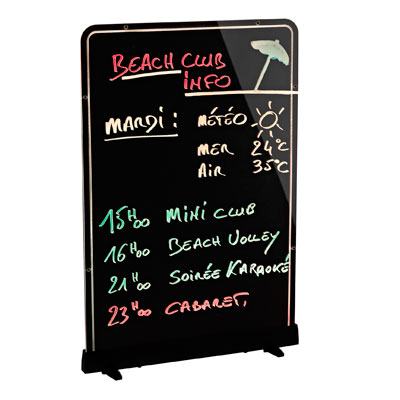 BEACH CLUB
INFO
MARDI : MÉTÉO
MER 24°C
AIR 35°C
15H00 MINI CLUB
16H00 BEACH VOLLEY
21H00 SOIRÉE KARAOKÉ
23H00 CABARET.